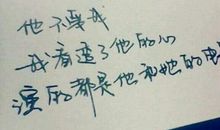 他不爱我
我看透了他的心
演的都是他和她的电